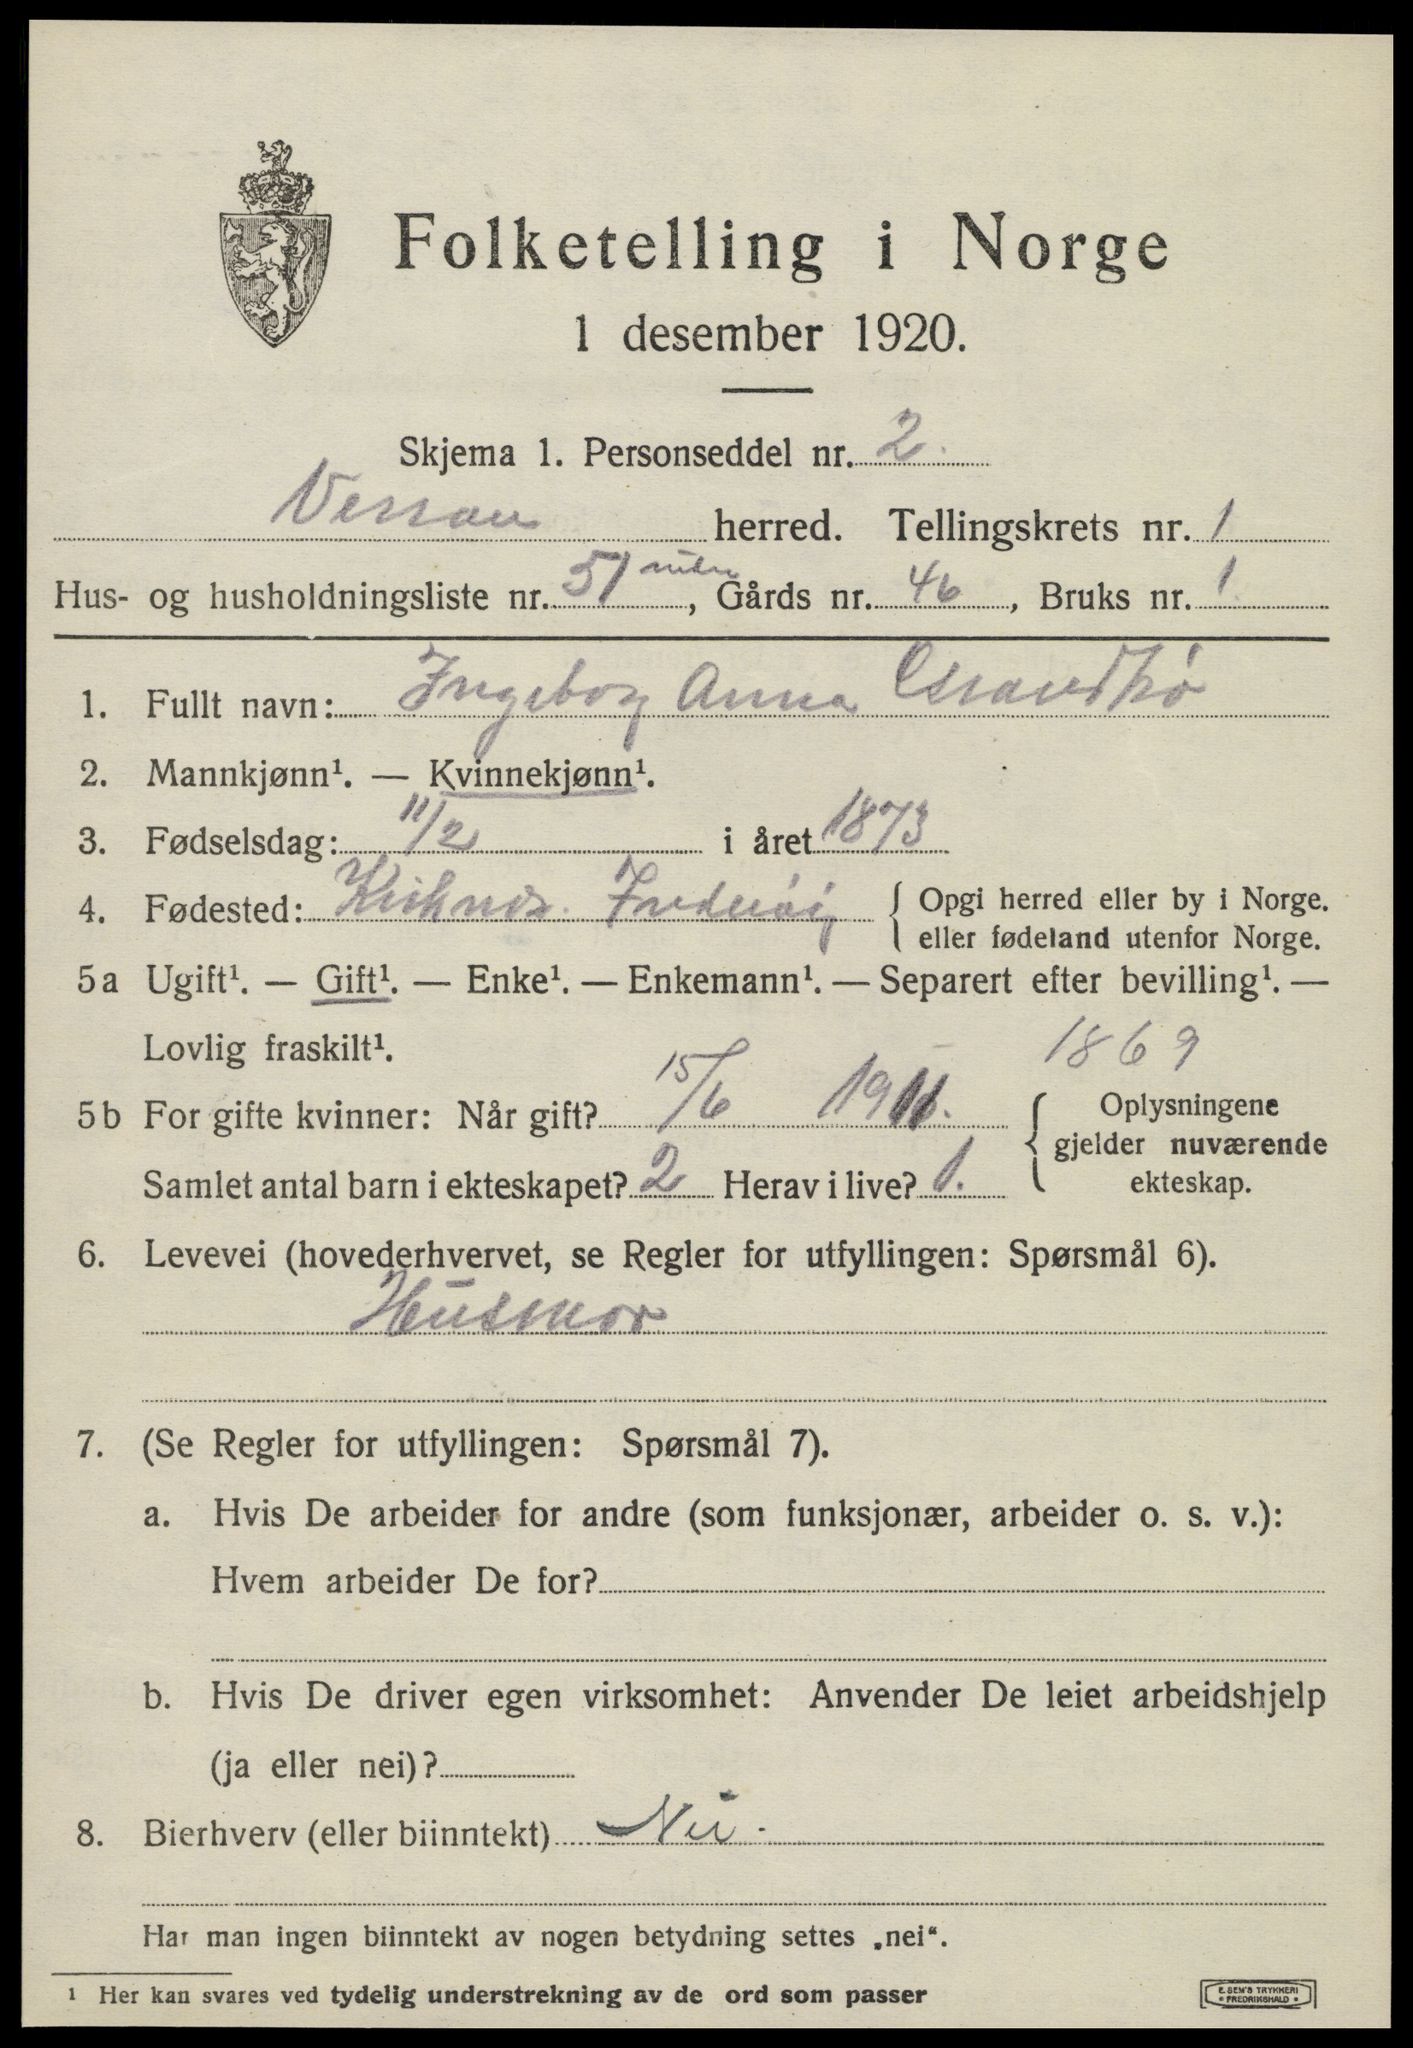 Folketelling i Norge
1 desember 1920.
Skjema 1. Personseddel nr. 2.
Verran herred. Tellingskrets nr. 1
Hus- og husholdningsliste nr. 51, Gårds nr. 46, Bruks nr. 1
1. Fullt navn: Ingeborg Anna
2. Mannkjønn¹. — Kvinnekjønn¹.
3. Fødselsdag: 11/2 i året 1873
4. Fødested: Inderøy { Opgi herred eller by i Norge.
eller fødeland utenfor Norge.
5a Ugift¹. — Gift¹. — Enke¹. — Enkemann¹. — Separert efter bevilling¹. —
Lovlig fraskilt¹. 1869
5b For gifte kvinner: Når gift? 15/6 1911. { Oplysningene
gjelder nuværende
Samlet antal barn i ekteskapet? 2 Herav i live? 1. ekteskap.
6. Levevei (hovederhvervet, se Regler for utfyllingen: Spørsmål 6).
Husmor
7. (Se Regler for utfyllingen: Spørsmål 7).
a. Hvis De arbeider for andre (som funksjonær, arbeider o. s. v.):
Hvem arbeider De for?
b. Hvis De driver egen virksomhet: Anvender De leiet arbeidshjelp
(ja eller nei)?
8. Bierhverv (eller biinntekt) Nei.
Har man ingen biinntekt av nogen betydning settes „nei“.
¹ Her kan svares ved tydelig understrekning av de ord som passer
E. SEM'S TRYKKERI
• FREDRIKSHALD •